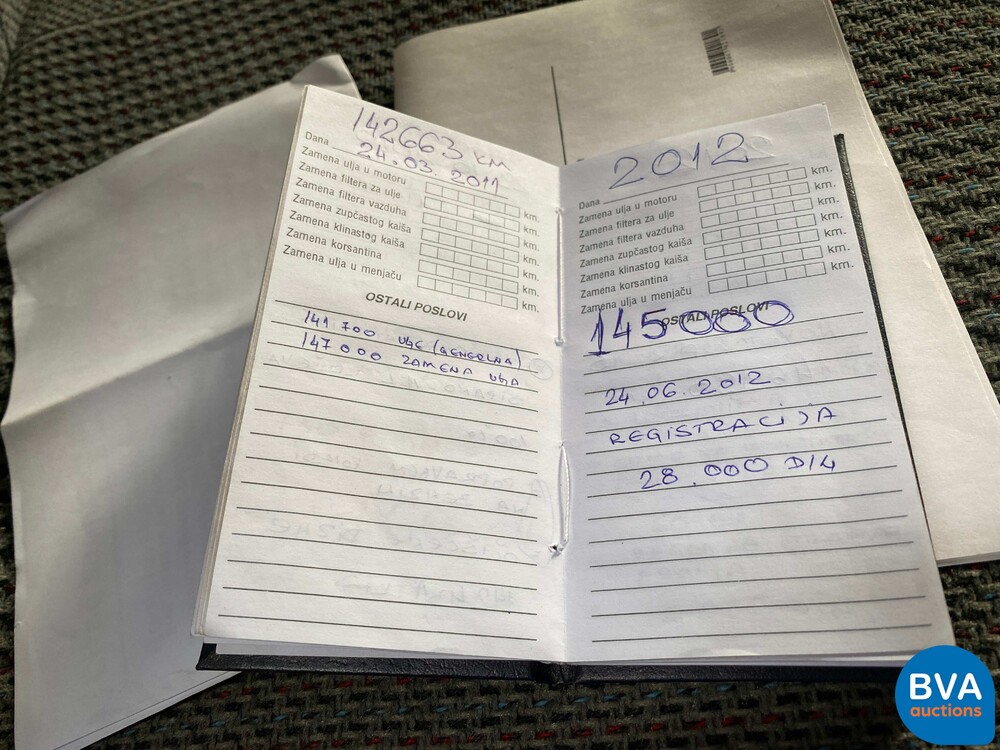 142663 KM
Dana 24.03.2011
Zamena ulja u motoru km.
Zamena filtera za ulje km.
Zamena filtera vazduha km.
Zamena zupčastog kaiša km.
Zamena klinastog kaiša km.
Zamena korsantina
Zamena ulja u menjaču
OSTALI POSLOVI
141 700 ULJE (GENERLNA)
147000 ZAMENA ULJA
2012
Dana
Zamena ulja u motoru km.
Zamena filtera za ulje km.
Zamena filtera vazduha km.
Zamena zupčastog kaiša km.
Zamena klinastog kaiša km.
Zamena korsantina
Zamena ulja u menjaču
OSTALI POSLOVI
145000
24.06.2012
REGISTRACIJA
28.000
BVA
auctions